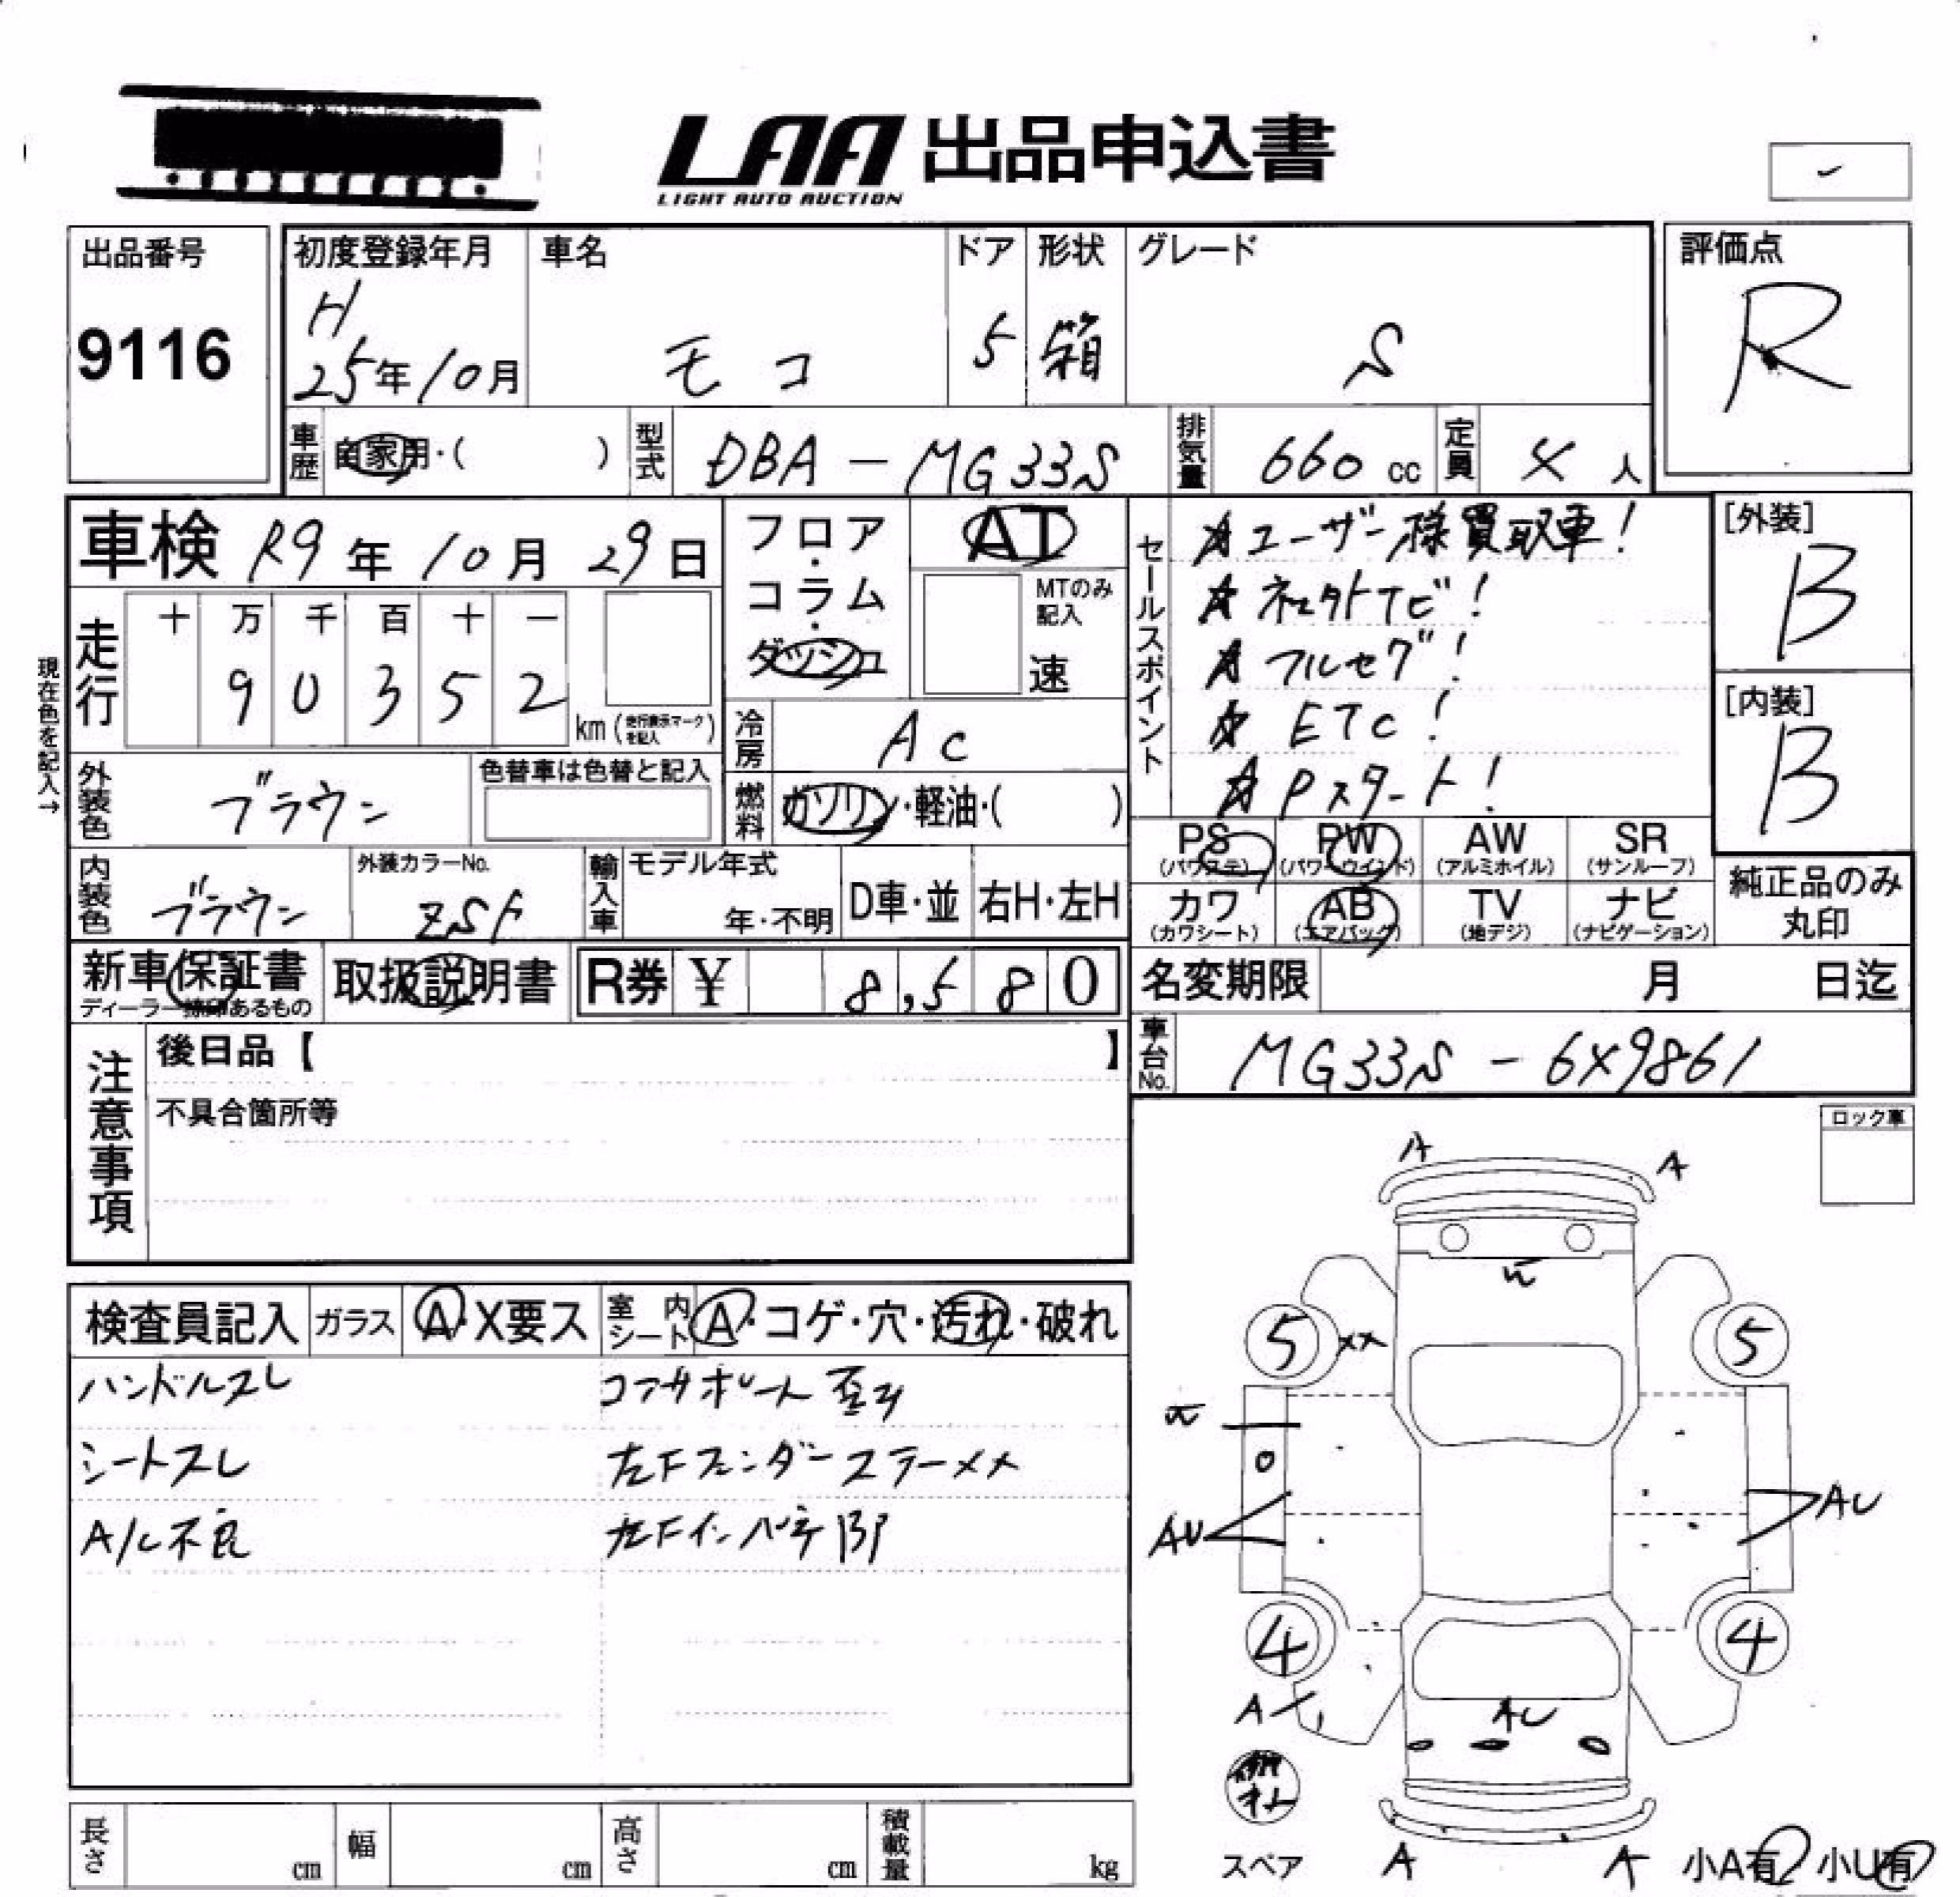 LAA 出品申込書
LIGHT AUTO AUCTION
出品番号
9116
初度登録年月
H
25年10月
車名
モコ
ドア
5
形状
箱
グレード
S
評価点
R
車歴
自家用・( )
型式
DBA-MG33S
排気量
660cc
定員
4人
車検 R9年10月29日
フロア・コラム・ダッシュ
AT
MTのみ記入
速
セールスポイント
ユーザー様買取車!
フルセグ!
ETC!
Pスタート!
[外装]
B
[内装]
B
現在色を記入→
走行
十 万 千 百 十 一
9 0 3 5 2
km(走行表示マークを記入)
冷房
AC
外装色
ブラウン
色替車は色替と記入
燃料
ガソリン・軽油・( )
PS
(パワステ)
PW
(パワーウインド)
AW
(アルミホイル)
SR
(サンルーフ)
内装色
ブラウン
外装カラーNo.
輸入車
モデル年式
年・不明
D車・並
右H・左H
カワ
(カワシート)
AB
(エアバッグ)
TV
(地デジ)
ナビ
(ナビゲーション)
純正品のみ
丸印
新車保証書
ディーラー捺印あるもの
取扱説明書
R券 ¥ 8,580
名変期限 月 日迄
車台No.
MG33S-6X9861
注意事項
後日品【 】
不具合箇所等
ロック車
検査員記入
ガラス
A・X要ス
室内シート
A・コゲ・穴・汚れ・破れ
ハンドルスレ
コアサポート歪み
シートスレ
左Fフェンダーステーxx
A/C不良
A A
5 xx 5
AU AU
4 4
A
AU
スペア
A A
小A有 小U有
長さ cm
幅 cm
高さ cm
積載量 kg